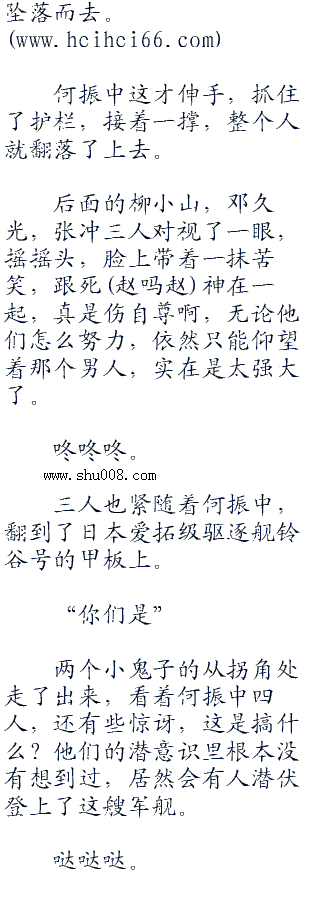 坠落而去。
(www.hcihci66.com)
何振中这才伸手，抓住
了护栏，接着一撑，整个人
就翻落了上去。
后面的柳小山，邓久
光，张冲三人对视了一眼，
摇摇头，脸上带着一抹苦
笑，跟死(赵吗赵)神在一
起，真是伤自尊啊，无论他
们怎么努力，依然只能仰望
着那个男人，实在是太强大
了。
咚咚咚。
www.shu008.com
三人也紧随着何振中，
翻到了日本爱拓级驱逐舰铃
谷号的甲板上。
“你们是”
两个小鬼子的从拐角处
走了出来，看着何振中四
人，还有些惊讶，这是搞什
么？他们的潜意识里根本没
有想到过，居然会有人潜伏
登上了这艘军舰。
哒哒哒。